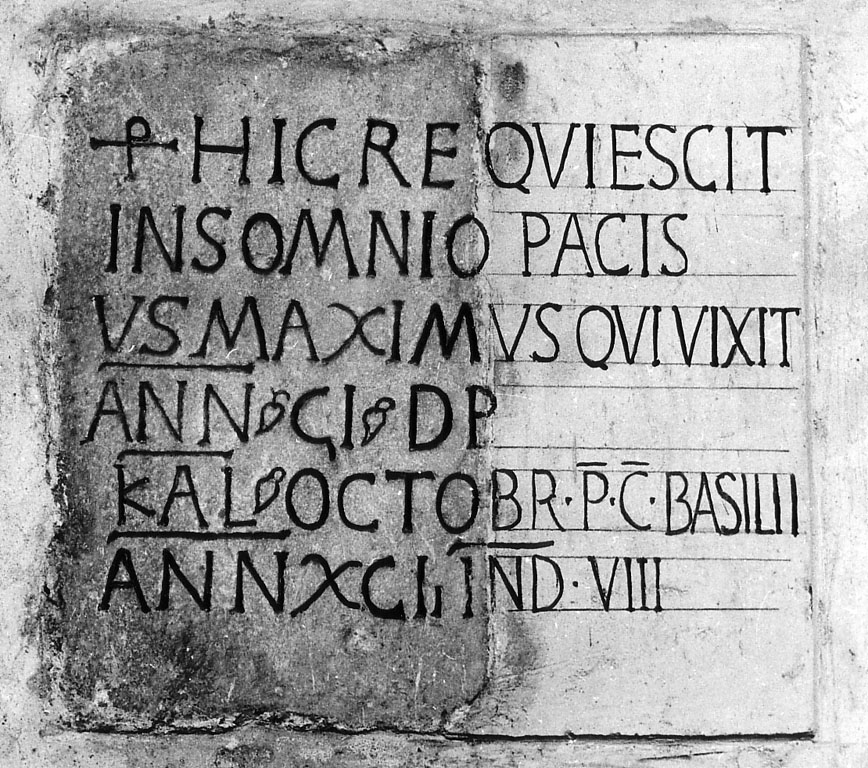 ⳨ HIC REQVIESCIT
IN SOMNIO PACIS
VS MAXIMVS QVI VIXIT
ANN ϚI DP
KAL OCTOBR · P̅ · C̅ · BASILII
ANN XϚII IND · VIII